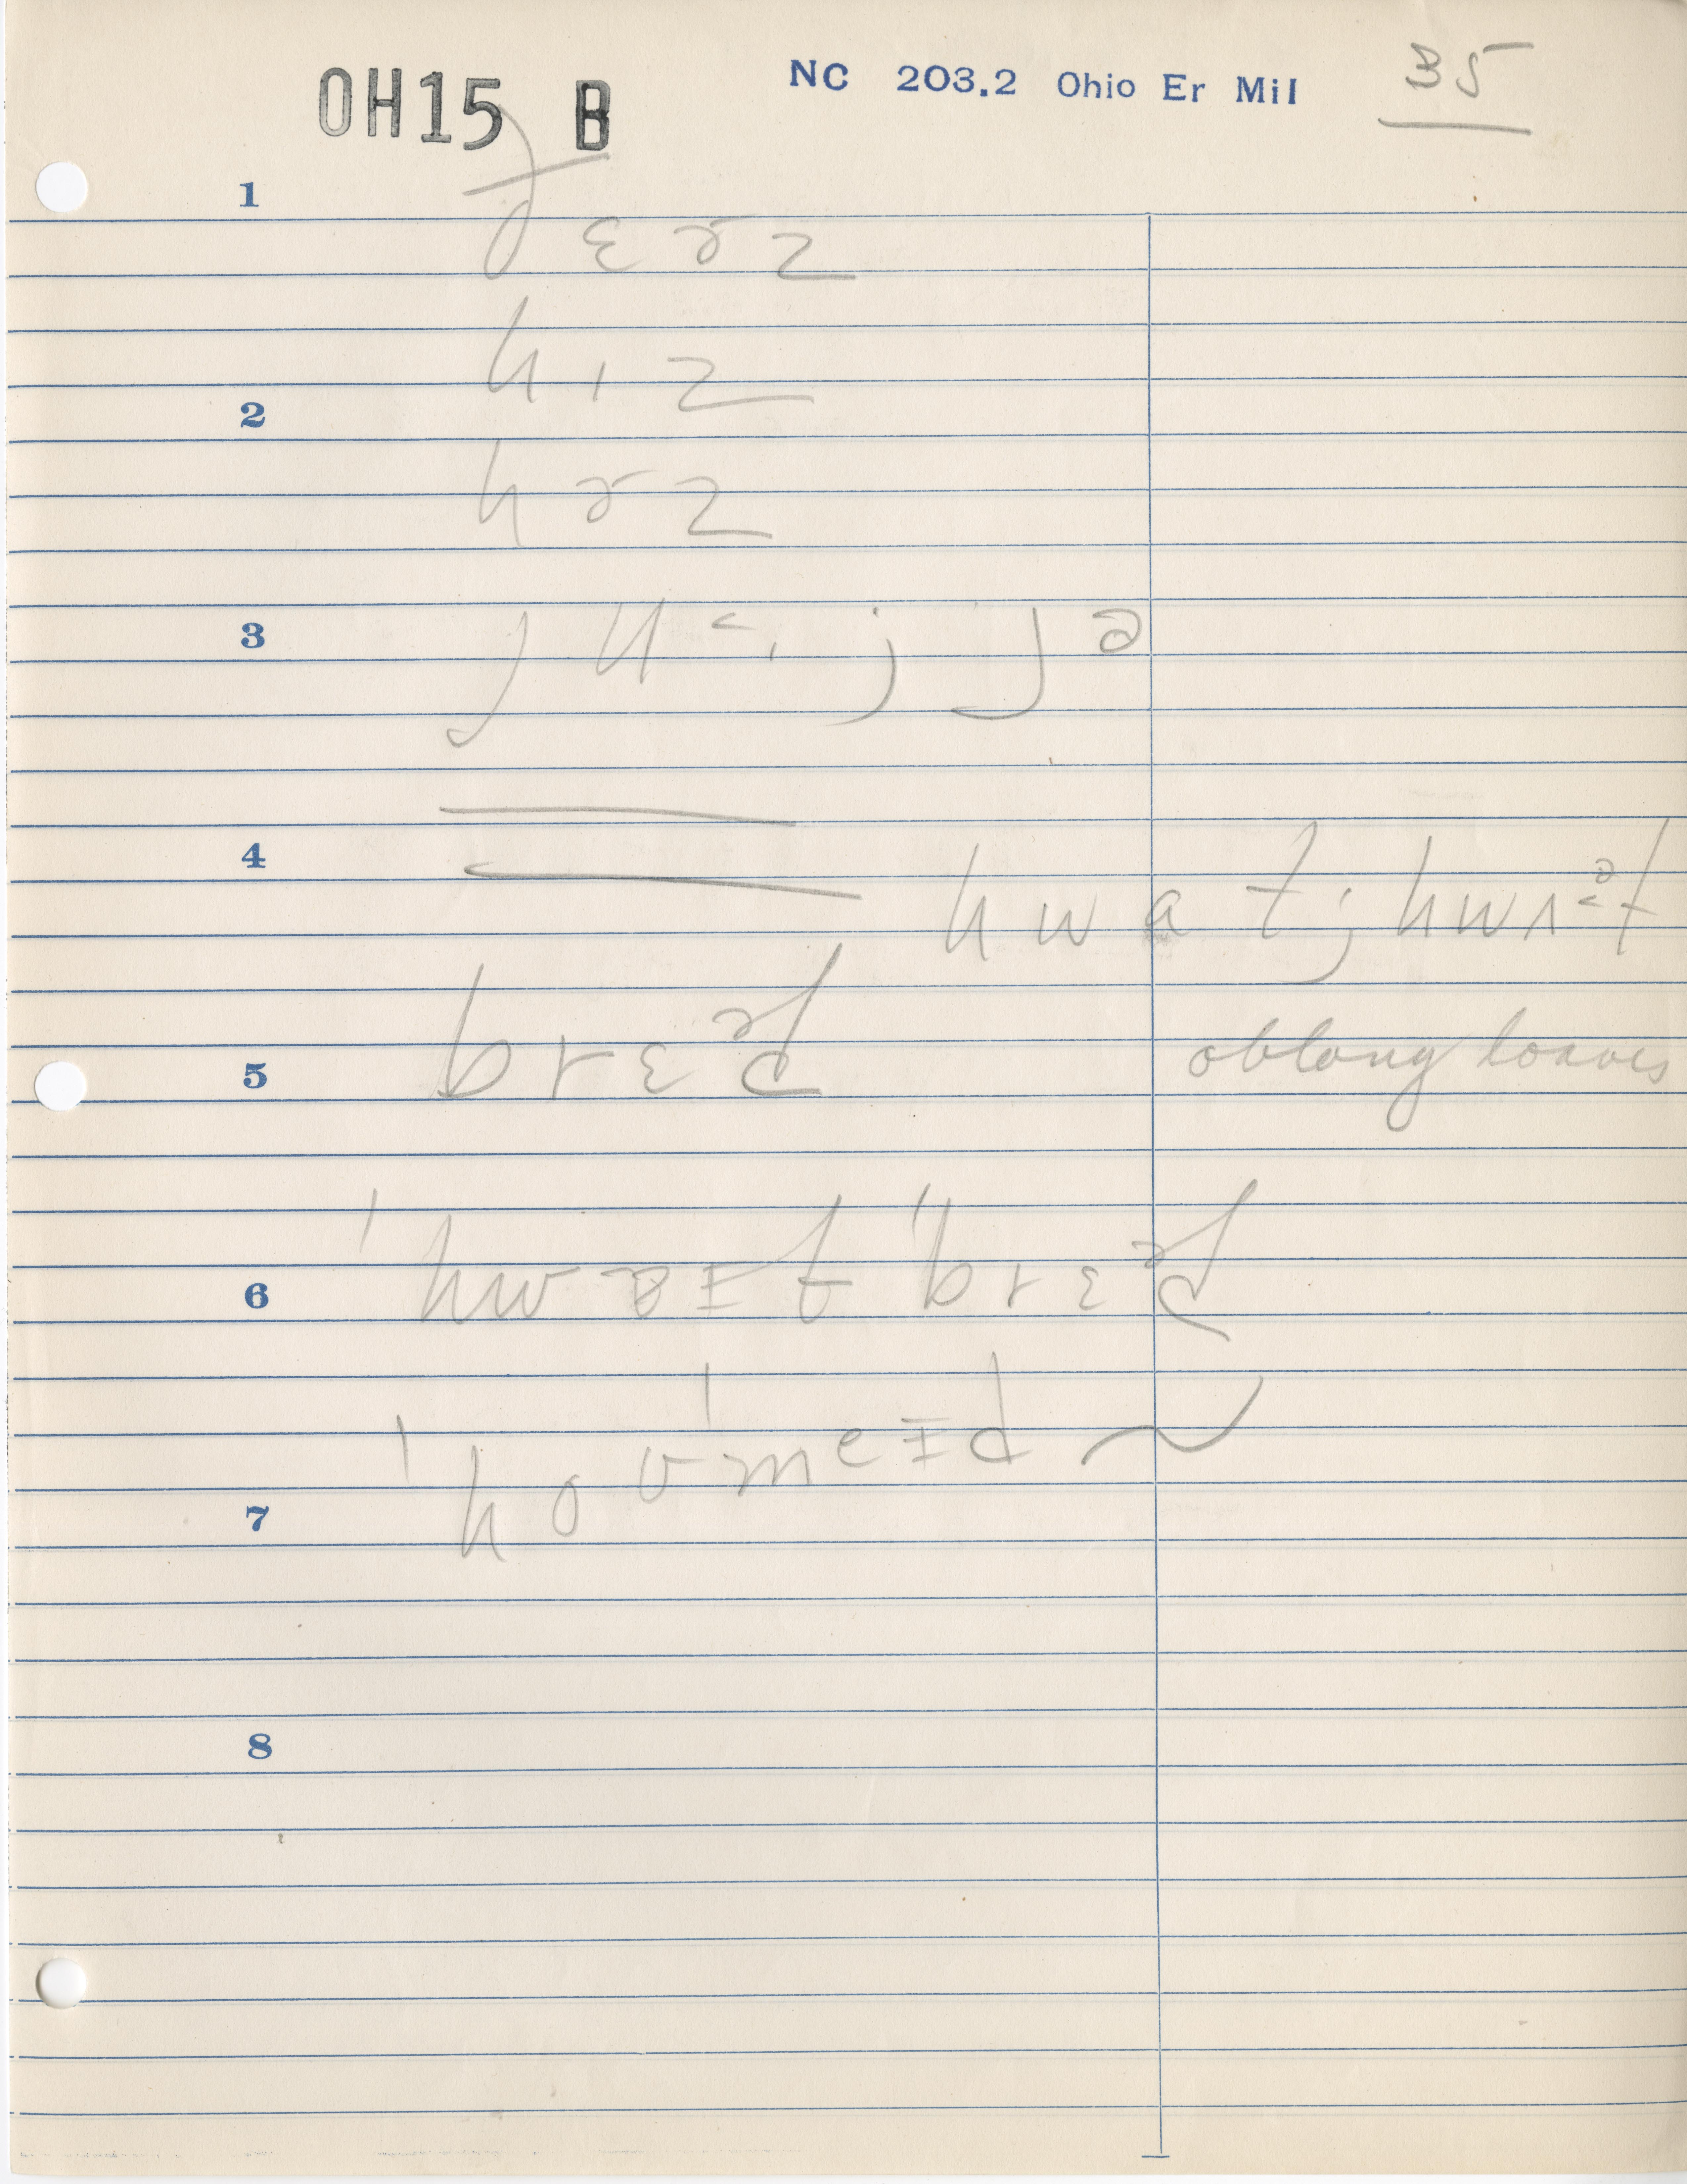 OH15 B NC 203.2 Ohio Er Mil 35
1
ð ɛ ɚ z
h ɪ z
2
h ɚ z
3
4
h w a t ; h w ʌ ə̆ t
5 b r ɛ ə d oblong loaves
6 ˈh w ɐ ɨ t ˈb r ɛ ə d
7 ˈh o ʊ ˈm e ɨ d ~
8